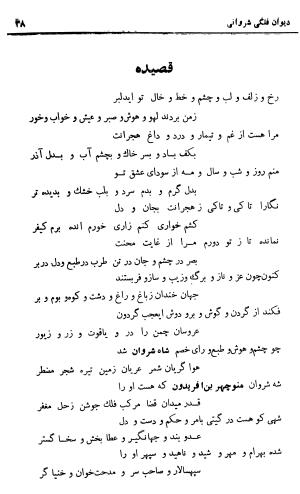 دیوان فلکی شروانی
۳۸
قصیده
رخ و زلف و لب و چشم و خط و خال تو ایدلبر
زمن بردند لهو و هوش و صبر و عیش و خواب و خور
مرا هست از غم و تیمار و درد و داغ هجرانت
بکف باد و بسر خاك و بچشم آب و بدل آذر
منم روز و شب و سال و مه از سودای عشق تو
بدل گرم و بدم سرد و بلب خشك و بدیده تر
نگارا تا کی و تا کی ز هجرانت بجان و دل
کشم خواری کنم زاری خورم انده برم کیفر
نمانده تا ز تو دورم مرا از غایت محنت
بصر در چشم و جان در تن طرب در طبع و دل در بر
کنون چون عز و ناز و برگ و زیب و ساز و فر بستند
جهان خندان ز باغ و راغ و دشت و کوه و بوم و بر
فکند از گردن و گوش و بر و دوش ایعجب گردون
عروسان چمن را در و یاقوت و زر و زیور
چو چشم و هوش و طبع و رای خصم شاه شروان شد
هوا گریان شمر عریان زمین تیره شجر مضطر
شه شروان منوچهر بن افریدون که هست او را
قدر میدان قضا مرکب فلك جوشن زحل مغفر
شهی کو هست در گیتی بامر و حکم و دست و دل
عدو بند و جهانگیر و عطا بخش و سخا گستر
شده بهرام و مهر و شید و ناهید و سپهر او را
سپهسالار و صاحب سر و مدحت‌خوان و خنیاگر